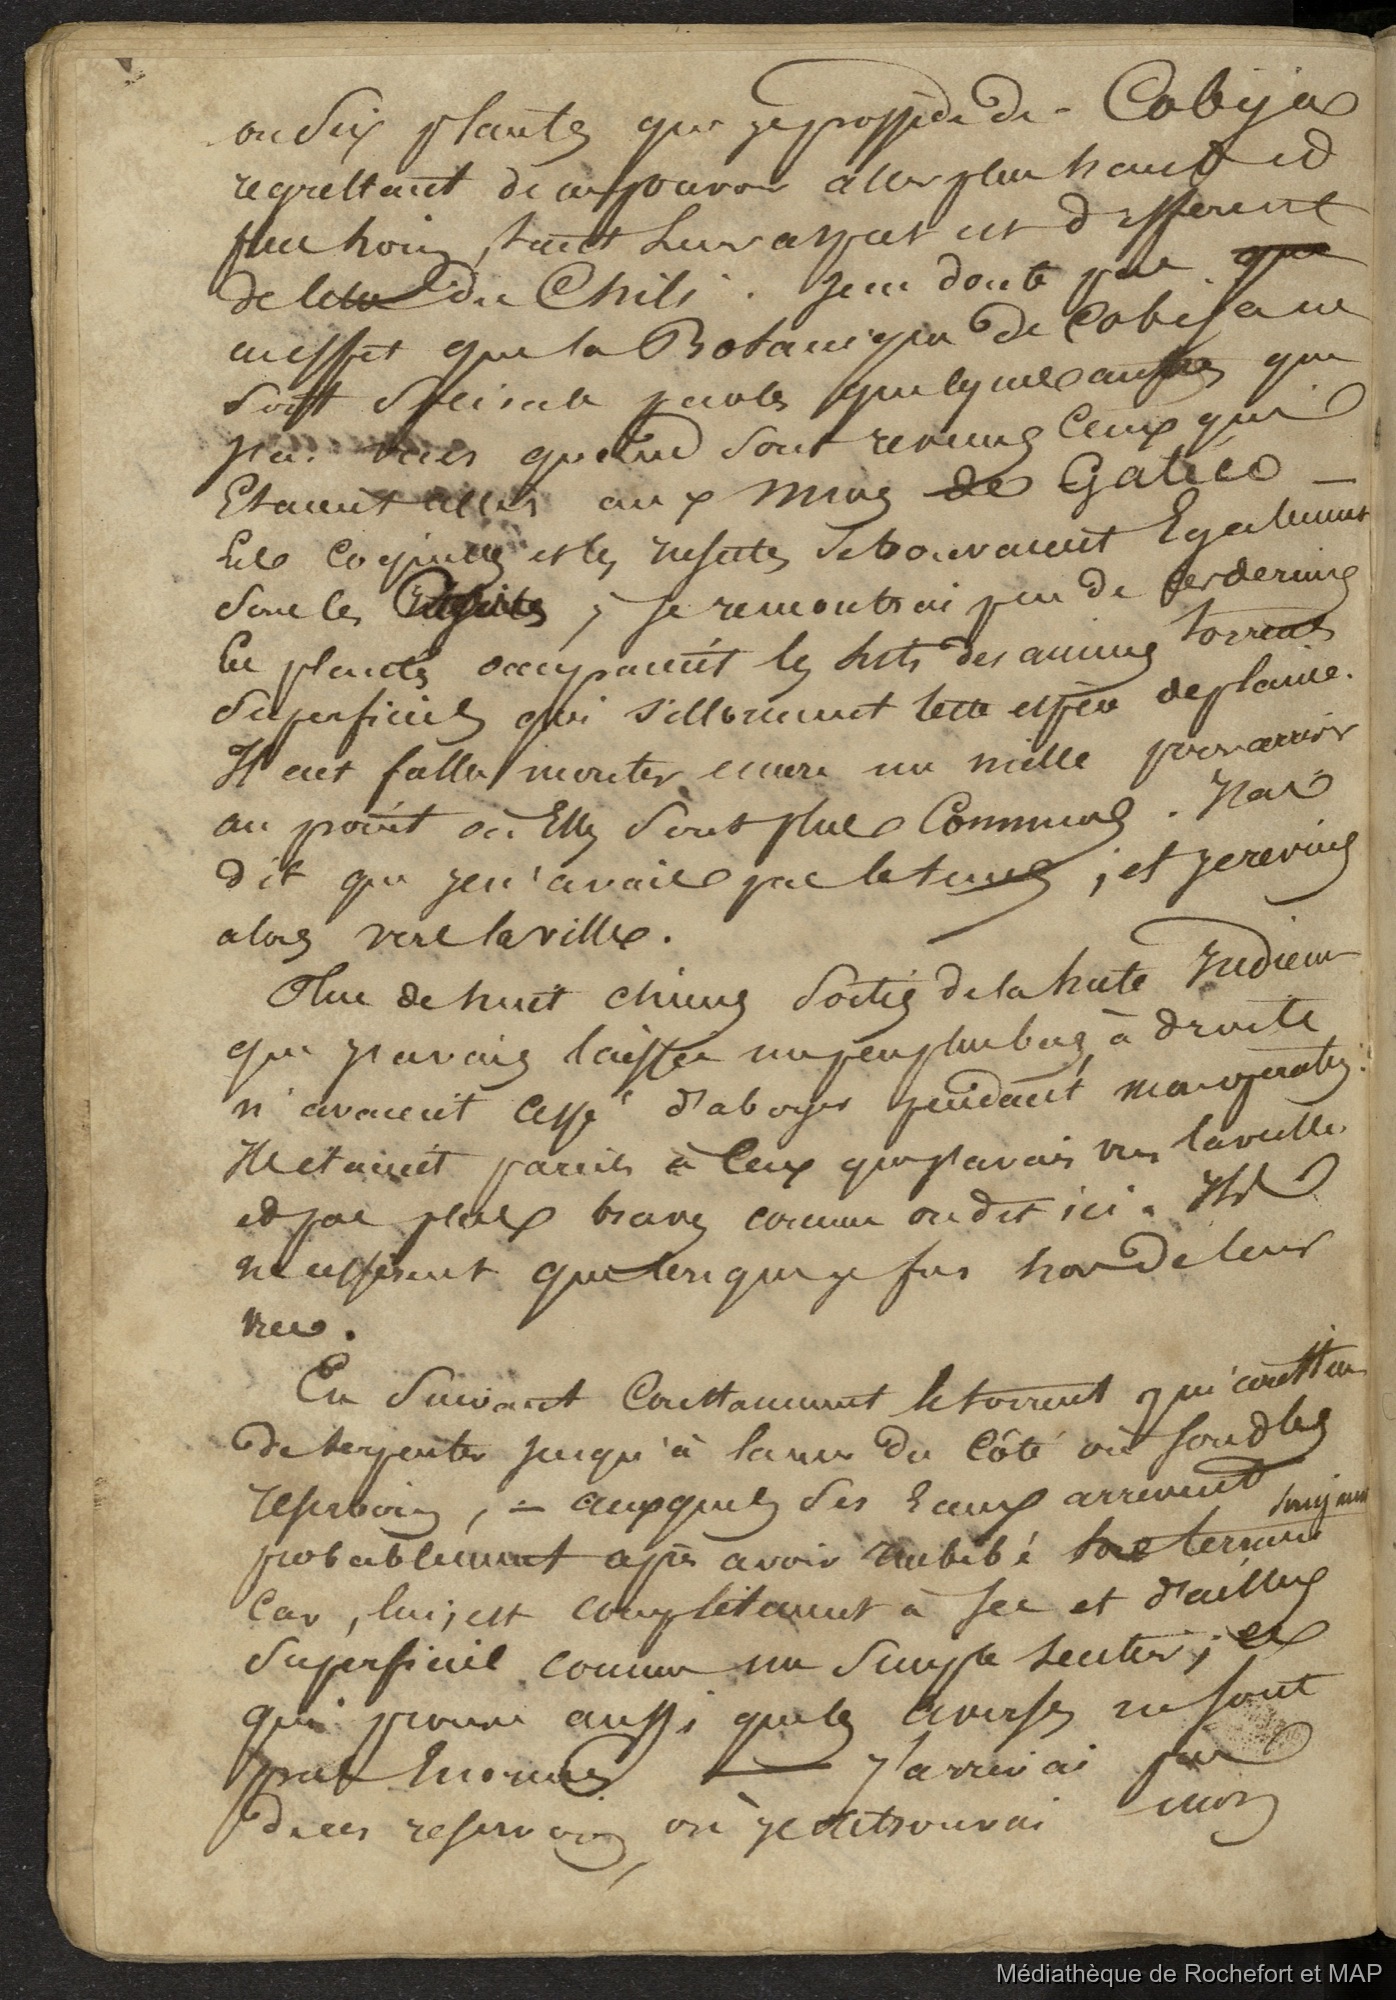 ou six plantes que je possède de - Cobija
regrettant de ne pouvoir aller plus haut et
plus loin, tant leur aspect est different
de celui du Chili. Je ne doute pas que
en effet que la Botanique de Cobija ne
soit speciale par les quelques autres que
j'ai vues quand sont revenus ceux qui
Etaient allés aux mines de Gatico _
Les coquilles et les insectes se trouvaient Egalement
sous les ; je remontrai peu de ces dernieres
Ces plantes occupaient les lits des anciens torrents
Superficiels qui sillonnent cette espèce de plaine.
Il eut fallu monter encore un mille pour arriver
au point où Elles sont plus Communes. J'ai
dit que je n'avais pas le tems ; et je revins
alors vers la ville.
Plus de huit chiens sortis de la hute Indienne
que j'avais laissée un peu plus bas, à droite
n'avaient cessé d'aboyer pendant mes
Ils etaient pareils à ceux que j'avais vus la veille
et pas plus braves comme on dit ici. Ils
ne cesserent que lorsque je fus hors de leur
vue.
En suivant constamment le torrent qui continue
de serpenter jusqu'à la mer du Côté où sont les
reservoirs, = auxquels ses Eaux arrivent
probablement après avoir imbibé tout le terrain
Car, lui, est complètement à sec et d'ailleurs
Superficiel comme un simple sentier ; ce
qui prouve aussi que les averses ne sont
pas Enormes — J'arrivai près
de ces reservoirs, où je retrouvai mes
Médiathèque de Rochefort et MAP